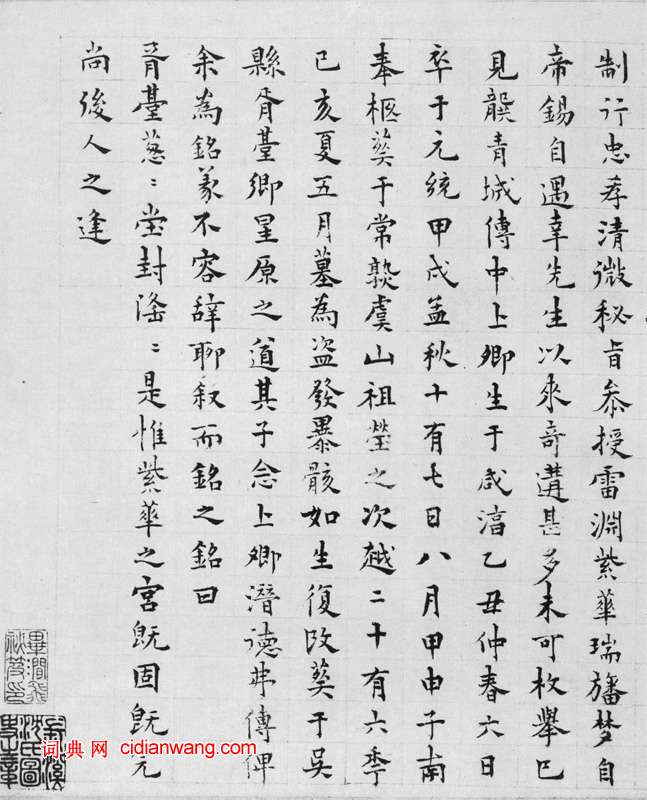 制行忠孝清微秘旨叅授雷淵紫華瑞旛梦自
帝錫自遇幸先生以來奇遘甚多未可枚舉已
見龔青城傳中上卿生于咸淳乙丑仲春六日
卒于元統甲戌孟秋十有七日八月甲申子南
奉柩葬于常熟虞山祖塋之次越二十有六季
己亥夏五月墓為盜發暴骸如生復改葬于吳
縣胥臺鄉星原之道其子念上卿潛德弗傳俾
余為銘義不容辭聊叙而銘之銘曰
胥臺葱〻堂封隆〻是惟紫華之宮既固既完
尚後人之逢
畢澗飛秘笈印
词典网 cidianwang.com